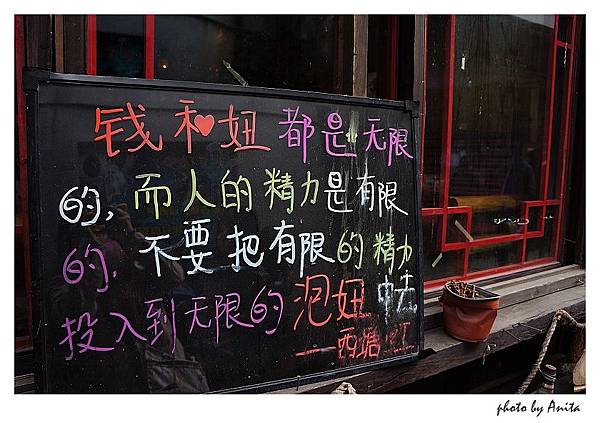 钱和妞都是无限
的，而人的精力是有限
的，不要把有限的精力
投入到无限的泡妞中去
——西塘
photo by Anita